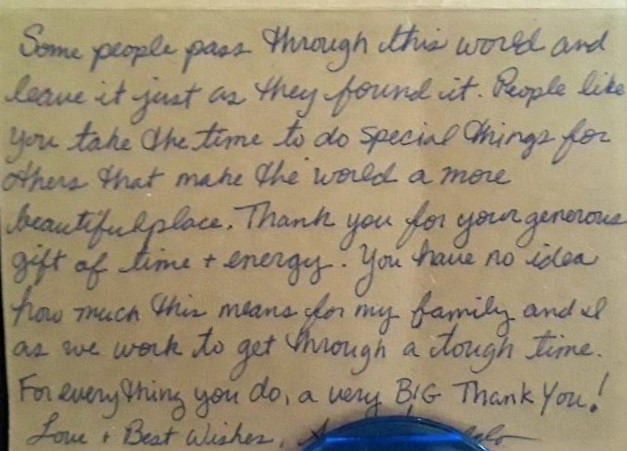 Some people pass through this world and
leave it just as they found it. People like
you take the time to do special things for
others that make the world a more
beautiful place. Thank you for your generous
gift of time + energy. You have no idea
how much this means for my family and I
as we work to get through a tough time.
For everything you do, a very BIG Thank You!
Love + Best Wishes,